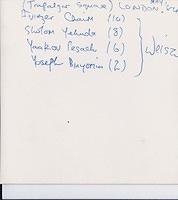 (Trafalgar Square) LONDON.
Chaim (10)
Sholom Yehuda (8)
Yaakov Pesach (6)
Yoseph Binyomin (2)
Weisz